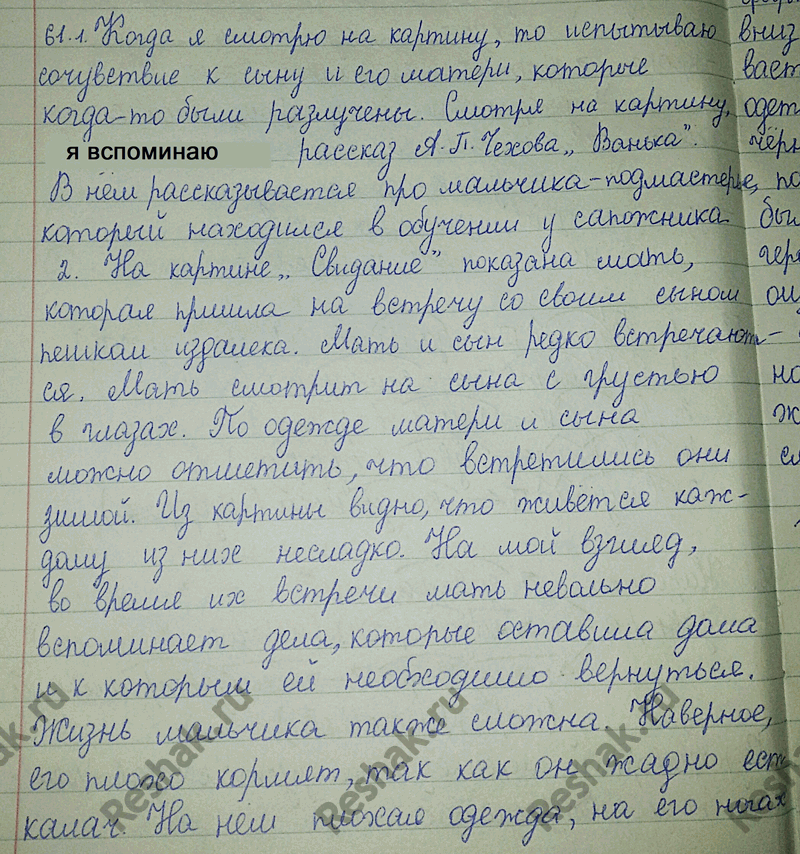 61.1. Когда я смотрю на картину, то испытываю
сочувствие к сыну и его матери, которые
когда-то были разлучены. Смотря на картину,
я вспоминаю рассказ А.П. Чехова „Ванька”.
В нём рассказывается про мальчика-подмастерье,
который находился в обучении у сапожника.
2. На картине „Свидание” показана мать,
которая пришла на встречу со своим сыном
пешком издалека. Мать и сын редко встречают-
ся. Мать смотрит на сына с грустью
в глазах. По одежде матери и сына
можно отметить, что встретились они
зимой. Из картины видно, что живётся каж-
дому из них несладко. На мой взгляд,
во время их встречи мать невольно
вспоминает дела, которые оставила дома
и к которым ей необходимо вернуться.
Жизнь мальчика также сложна. Наверное,
его плохо кормят, так как он жадно ест
калач. На нём плохая одежда, на его ногах
Reshak.ru
Reshak.ru
Reshak.ru